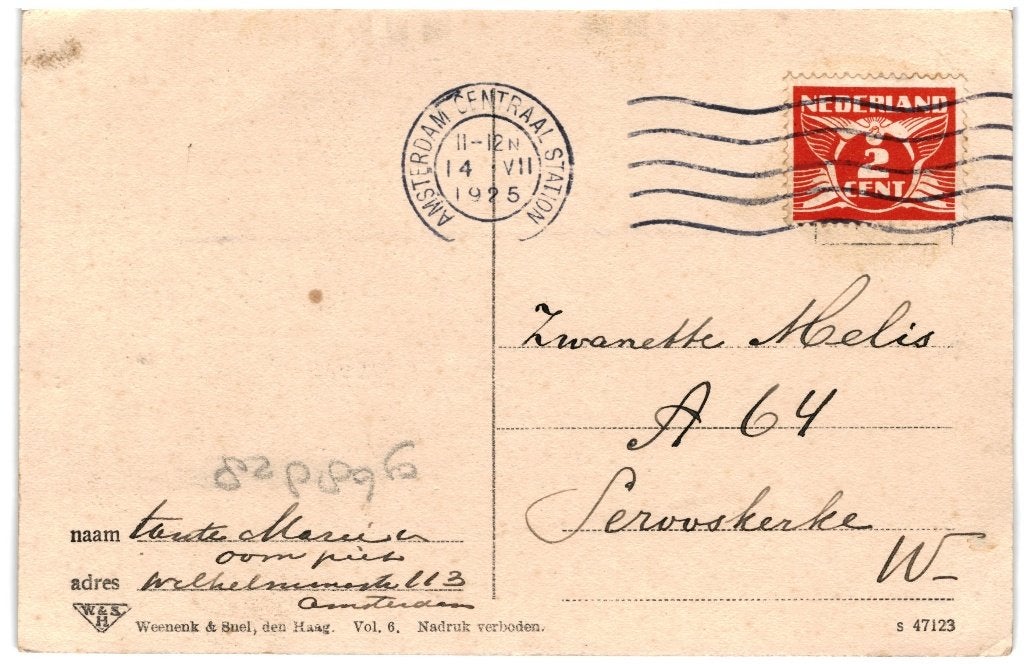 AMSTERDAM CENTRAAL STATION
11-12N
14 VII
1925
NEDERLAND
2
CENT
Zwanette Melis
A 64
Serooskerke
W-
naam tante Marie en
oom piet
adres Wilhelminastr 113
Amsterdam
W & S
H
Weenenk & Snel, den Haag. Vol. 6. Nadruk verboden.
s 47123